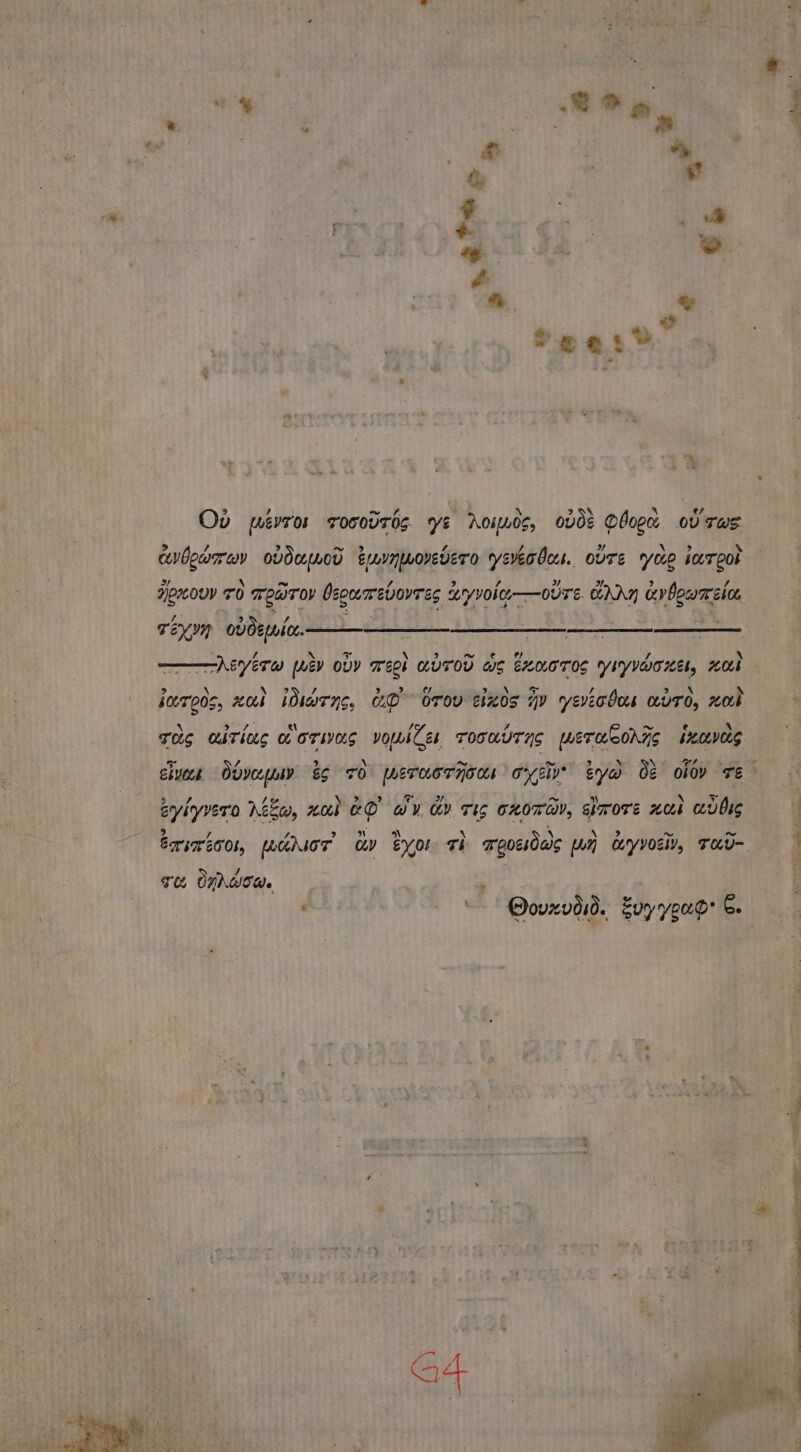 Οὐ μέντοι τοσοῦτός γε λοιμὸς, οὐδὲ φθορὰ οὕτως
ἀνθρώπων οὐδαμοῦ ἐμνημονεύετο γενέσθαι. οὔτε γὰρ ἰατροὶ
ἤρκουν τὸ πρῶτον θεραπεύοντες ἀγνοίᾳ—οὔτε ἄλλη ἀνθρωπεία
τέχνη οὐδεμία.———
——λεγέτω μὲν οὖν περὶ αὐτοῦ ὡς ἕκαστος γιγνώσκει, καὶ
ἰατρὸς, καὶ ἰδιώτης, ἀφ' ὅτου εἰκὸς ἦν γενέσθαι αὐτὸ, καὶ
τὰς αἰτίας ἅστινας νομίζει τοσαύτης μεταβολῆς ἱκανὰς
εἶναι δύναμιν ἐς τὸ μεταστῆσαι σχεῖν· ἐγὼ δὲ οἷόν τε
ἐγίγνετο λέξω, καὶ ἀφ' ὧν ἄν τις σκοπῶν, εἴποτε καὶ αὖθις
ἐπιπέσοι, μάλιστ' ἂν ἔχοι τὶ προειδὼς μὴ ἀγνοεῖν, ταῦ-
τα δηλώσω.
Θουκυδιδ. ξυγγραφ· ϐ.
G4